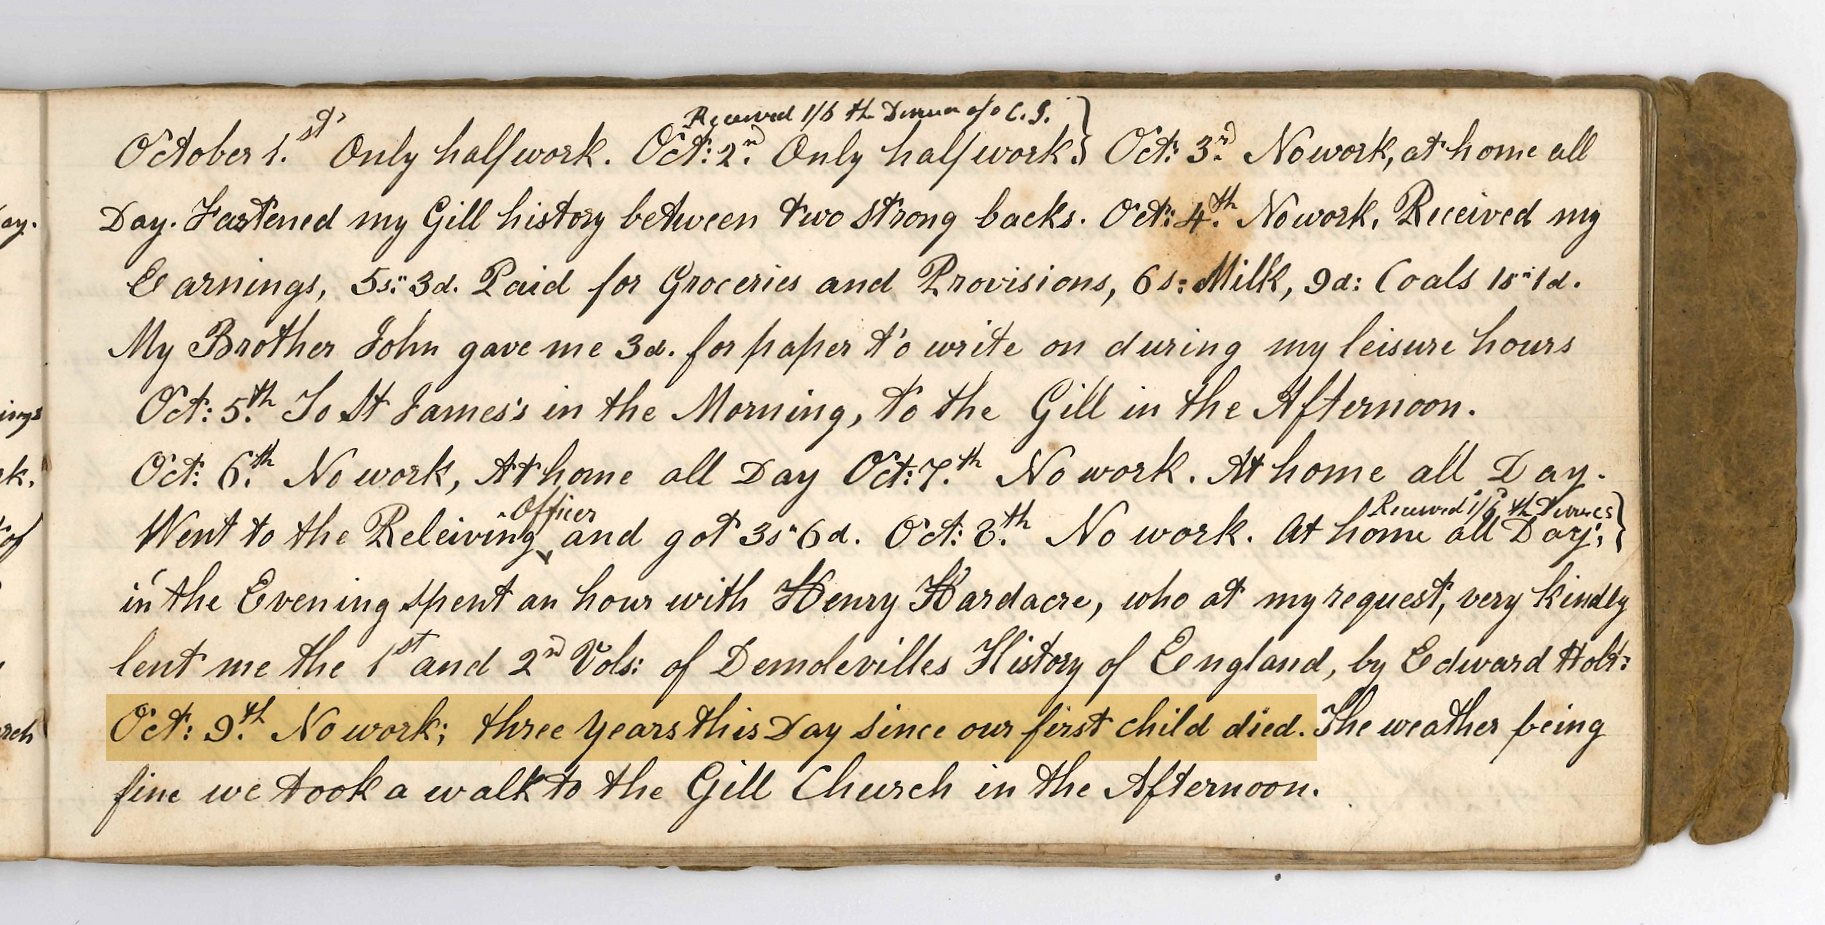 Received 1/6 th
October 1.st Only half work. Oct: 2nd. Only half work} Oct: 3rd. No work, at home all
Day. Fastened my Gill history between two strong backs. Oct: 4.th No work, Received my
Earnings, 5s" 3d. Paid for Groceries and Provisions, 6s: Milk, 9d: Coals 1s"1d.
My Brother John gave me 3d. for paper to write on during my leisure hours
Oct: 5.th To St James's in the Morning, to the Gill in the Afternoon.
Oct: 6.th No work, At home all Day Oct: 7.th No work. At home all Day.
Officer Received 1/6 th
Went to the Releiving and got 3s"6d. Oct: 8.th No work. At home all Day;}
in the Evening spent an hour with Henry Hardacre, who at my request, very kindly
lent me the 1st and 2nd Vols: of Demolevilles History of England, by Edward Holt:
Oct: 9.th No work; three years this Day since our first child died. The weather being
fine we took a walk to the Gill Church in the Afternoon.
ay.
ings
rk.
of
rch